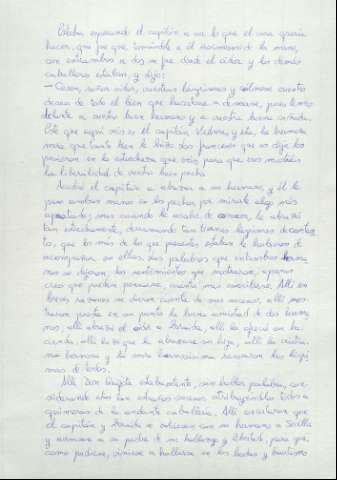 Estaba esperando el capitán a ver lo que el cura quería
hacer, que fue que, tomándole a él asimismo de la mano,
con entrambos a dos se fue donde el oidor y los demás
caballeros estaban, y dijo:
— Cesen, señor oidor, vuestras lágrimas y cólmese vuestro
deseo de todo el bien que acertare a desearse, pues tenéis
delante a vuestro buen hermano y a vuestra buena cuñada.
Este que aquí veis es el capitán Viedma, y ésta, la hermosa
mora que tanto bien le hizo. Los franceses que os dije los
pusieron en la estrecheza que veis, para que vos mostréis
la liberalidad de vuestro buen pecho.
Acudió el capitán a abrazar a su hermano, y él le
puso ambas manos en los pechos por mirarle algo más
apartado; mas cuando le acabó de conocer, le abrazó
tan estrechamente, derramando tan tiernas lágrimas de conten
to, que los más de los que presentes estaban le hubieron de
acompañar en ellas. Las palabras que entrambos herma
nos se dijeron, los sentimientos que mostraron, apenas
creo que pueden pensarse, cuanto más escribirse. Allí en
breves razones se dieron cuenta de sus sucesos, allí mos
traron puesta en su punto la buena amistad de dos herma
nos, allí abrazó el oidor a Zoraida, allí la ofreció su ha
cienda, allí hizo que la abrazase su hija, allí la cristia
na hermosa y la mora hermosísima renovaron las lágri
mas de todos.
Allí don Quijote estaba atento, sin hablar palabra, con
siderando estos tan extraños sucesos, atribuyéndolos todos a
quimeras de la andante caballería. Allí concertaron que
el capitán y Zoraida se volviesen con su hermano a Sevilla
y avisasen a su padre de su hallazgo y libertad, para que,
como pudiese, viniese a hallarse en las bodas y bautismo